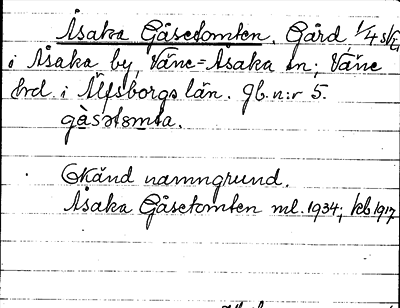 Åsaka Gåsetomten. Gård 1/4 sk
i Åsaka by, Väne-Åsaka sn; Väne
hrd. i Älfsborgs län. Jb. n:r 5.
gàsətomta.
Okänd namngrund.
Åsaka Gåsetomten ml. 1934; kb 1917